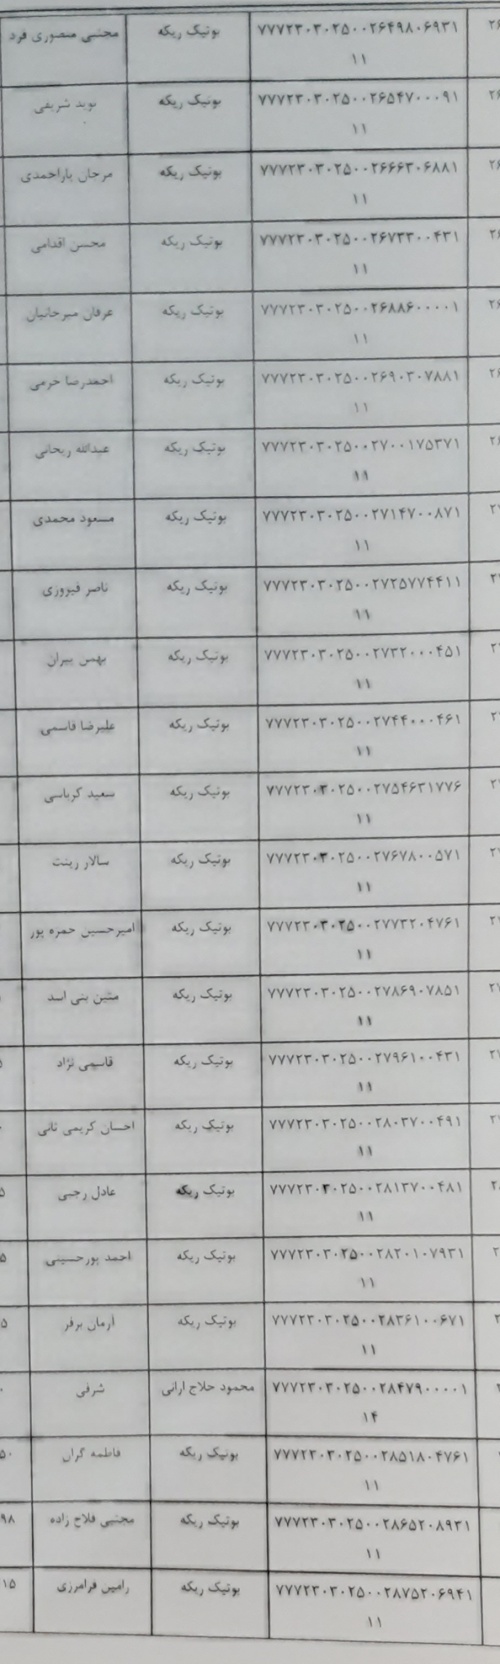 مجتبی منصوری فرد بوتیک ریکه ۷۷۷۲۳۰۳۰۲۵۰۰۲۶۴۹۸۰۶۹۳۱
۱۱
نوید شریفی بوتیک ریکه ۷۷۷۲۳۰۳۰۲۵۰۰۲۶۵۴۷۰۰۰۹۱
۱۱
مرجان یاراحمدی بوتیک ریکه ۷۷۷۲۳۰۳۰۲۵۰۰۲۶۶۶۳۰۶۸۸۱
۱۱
محسن اقدامی بوتیک ریکه ۷۷۷۲۳۰۳۰۲۵۰۰۲۶۷۳۳۰۰۴۳۱
۱۱
عرفان میرخانیان بوتیک ریکه ۷۷۷۲۳۰۳۰۲۵۰۰۲۶۸۸۶۰۰۰۰۱
۱۱
احمدرضا خرمی بوتیک ریکه ۷۷۷۲۳۰۳۰۲۵۰۰۲۶۹۰۳۰۷۸۸۱
۱۱
عبدالله ریحانی بوتیک ریکه ۷۷۷۲۳۰۳۰۲۵۰۰۲۷۰۰۱۷۵۳۷۱
۱۱
مسعود محمدی بوتیک ریکه ۷۷۷۲۳۰۳۰۲۵۰۰۲۷۱۴۷۰۰۸۷۱
۱۱
ناصر فیروزی بوتیک ریکه ۷۷۷۲۳۰۳۰۲۵۰۰۲۷۲۵۷۷۴۴۱۱
۱۱
بهمن بیران بوتیک ریکه ۷۷۷۲۳۰۳۰۲۵۰۰۲۷۳۲۰۰۰۴۵۱
۱۱
علیرضا قاسمی بوتیک ریکه ۷۷۷۲۳۰۳۰۲۵۰۰۲۷۴۴۰۰۰۴۶۱
۱۱
سعید کرباسی بوتیک ریکه ۷۷۷۲۳۰۳۰۲۵۰۰۲۷۵۴۶۳۱۷۷۶
۱۱
سالار زینت بوتیک ریکه ۷۷۷۲۳۰۳۰۲۵۰۰۲۷۶۷۸۰۰۵۷۱
۱۱
امیرحسین حمزه پور بوتیک ریکه ۷۷۷۲۳۰۳۰۲۵۰۰۲۷۷۳۲۰۴۷۶۱
۱۱
متین بنی اسد بوتیک ریکه ۷۷۷۲۳۰۳۰۲۵۰۰۲۷۸۶۹۰۷۸۵۱
۱۱
قاسمی نژاد بوتیک ریکه ۷۷۷۲۳۰۳۰۲۵۰۰۲۷۹۶۱۰۰۴۳۱
۱۱
احسان کریمی ثانی بوتیک ریکه ۷۷۷۲۳۰۳۰۲۵۰۰۲۸۰۳۷۰۰۴۹۱
۱۱
عادل رجبی بوتیک ریکه ۷۷۷۲۳۰۳۰۲۵۰۰۲۸۱۳۷۰۰۴۸۱
۱۱
احمد پورحسینی بوتیک ریکه ۷۷۷۲۳۰۳۰۲۵۰۰۲۸۲۰۱۰۷۹۳۱
۱۱
آرمان برفر بوتیک ریکه ۷۷۷۲۳۰۳۰۲۵۰۰۲۸۳۶۱۰۰۶۷۱
۱۱
شرفی محمود حلاج ارانی ۷۷۷۲۳۰۳۰۲۵۰۰۲۸۴۷۹۰۰۰۰۱
۱۴
فاطمه گران بوتیک ریکه ۷۷۷۲۳۰۳۰۲۵۰۰۲۸۵۱۸۰۴۷۶۱
۱۱
مجتبی فلاح زاده بوتیک ریکه ۷۷۷۲۳۰۳۰۲۵۰۰۲۸۶۵۲۰۸۹۳۱
۱۱
رامین فرامرزی بوتیک ریکه ۷۷۷۲۳۰۳۰۲۵۰۰۲۸۷۵۲۰۶۹۴۱
۱۱